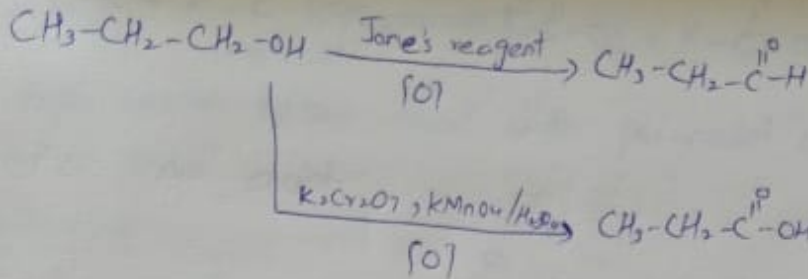 CH₃-CH₂-CH₂-OH Jone's reagent [O] CH₃-CH₂-C(=O)-H
K₂Cr₂O₇, KMnO₄/H₂SO₄ [O] CH₃-CH₂-C(=O)-OH